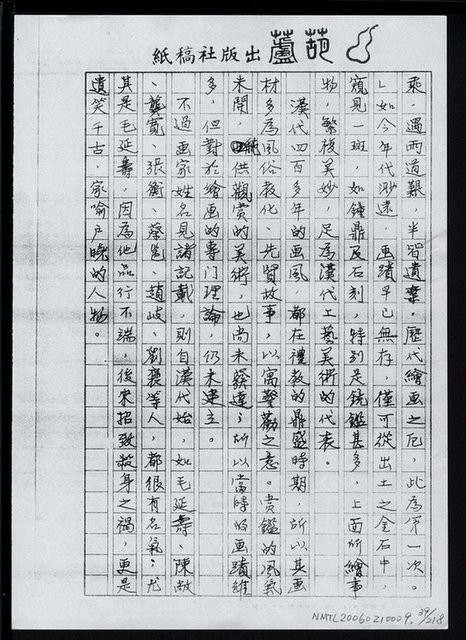 葫蘆出版社稿紙
乘，遇雨道艱，半皆遺棄，歷代繪画之厄，此為第一次。
」如今年代渺遠，画蹟早已無存，僅可從出土之金石中，
窺見一斑，如鐘鼎及石刻，特別是鏡鑑甚多，上面所繪事
物，繁複美妙，足為漢代工藝美術的代表。
漢代四百多年的画風，都在禮教的鼎盛時期，所以其画
材多為風俗教化、先賢故事，以寓警勸之意。賞鑑的風氣
未開，純供觀賞的美術，也尚未發達；所以當時的画蹟雖
多，但對於繪画的專门理論，仍未建立。
不過画家姓名見諸記載，則自漢代始，如毛延壽、陳敞
、龔寬、張衡、蔡邕、趙岐、劉褒等人，都很有名氣；尤
其是毛延壽，因為他品行不端，後來招致殺身之禍，更是
遺笑千古，家喻户曉的人物。
NMTL20060210009. 39/218